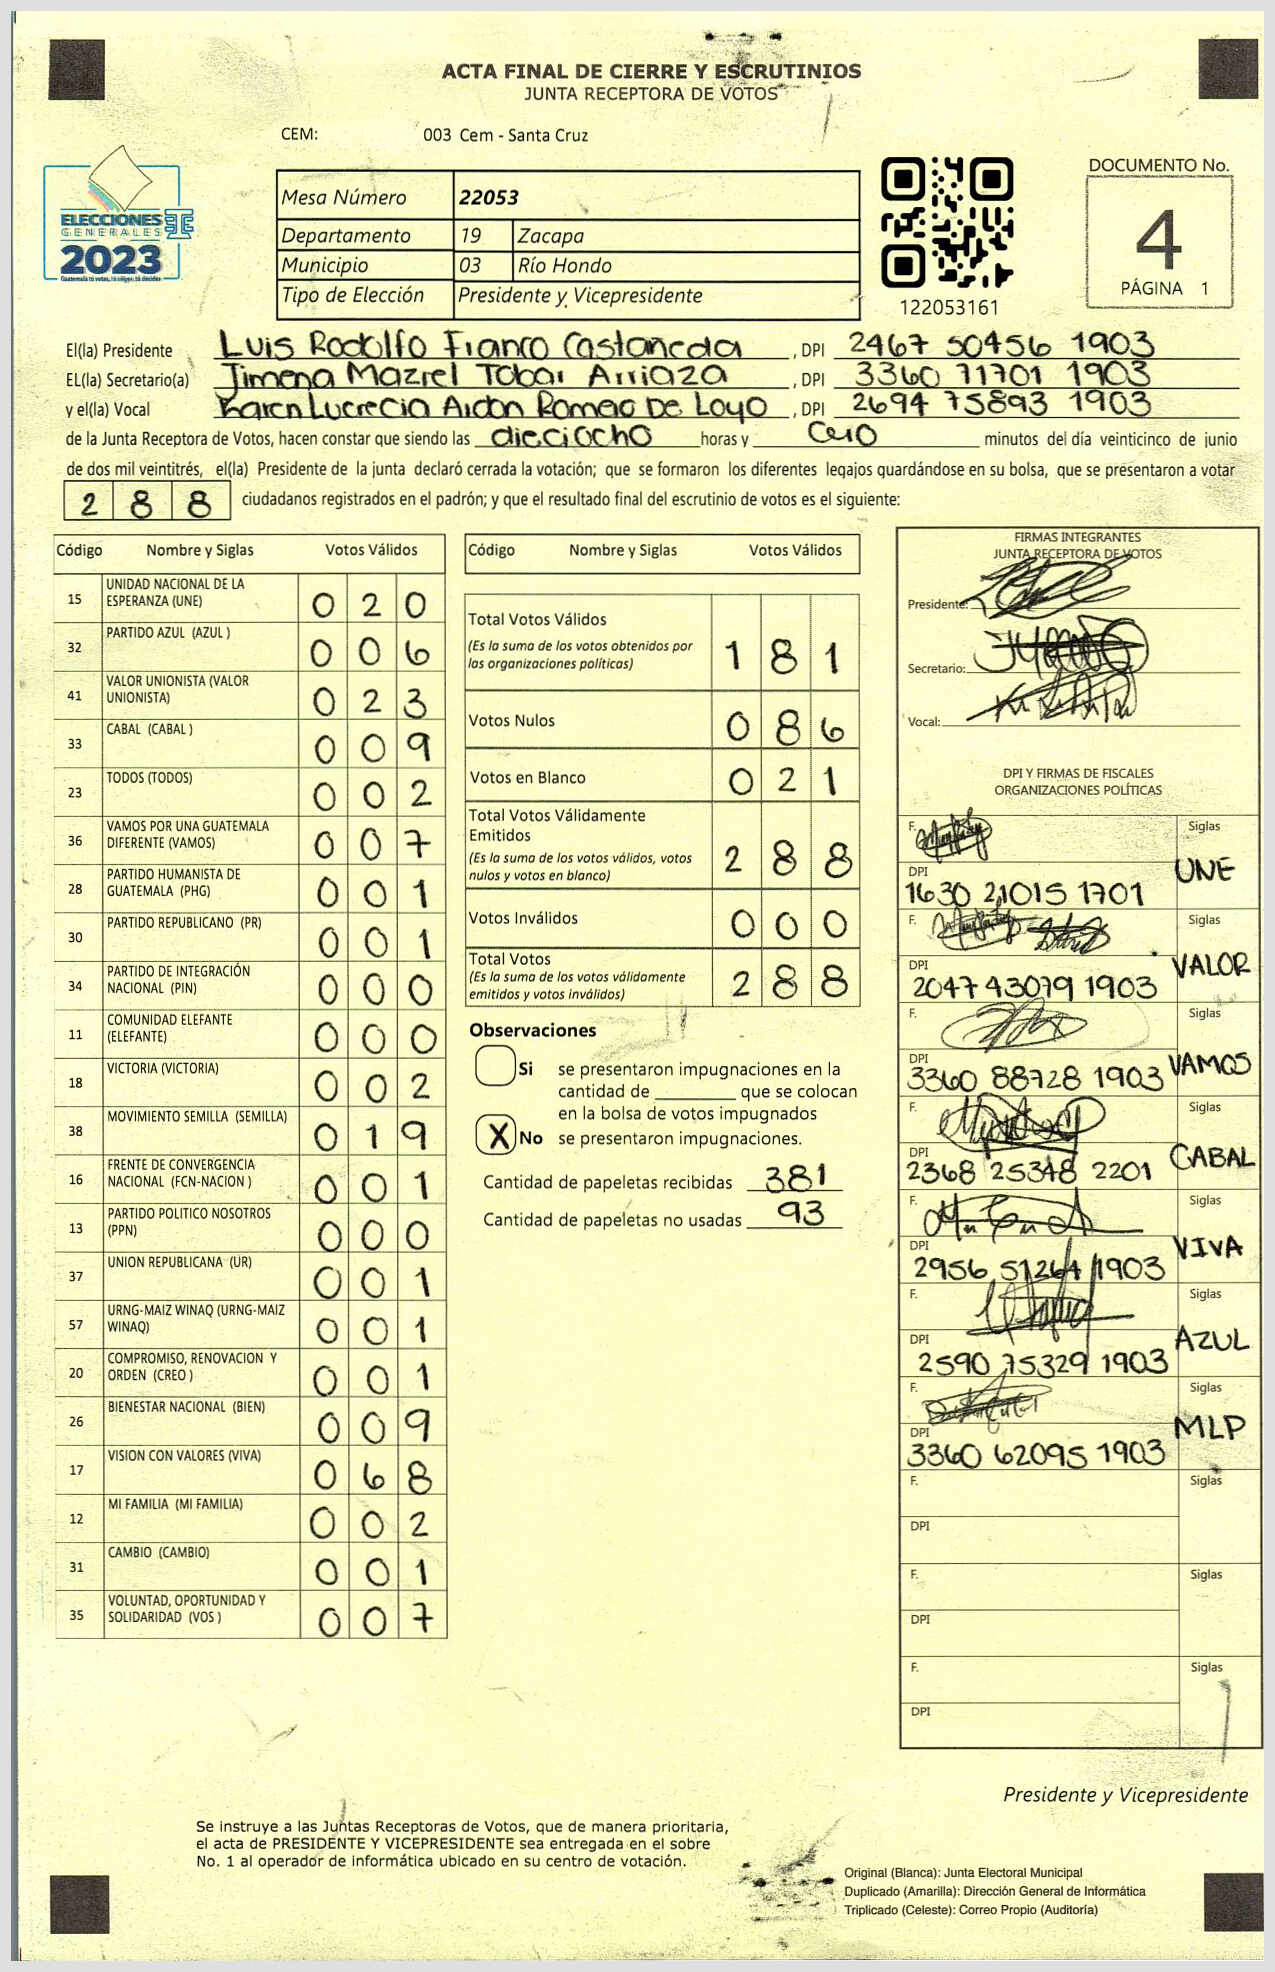 ACTA FINAL DE CIERRE Y ESCRUTINIOS
JUNTA RECEPTORA DE VOTOS
CEM: 003 Cem - Santa Cruz
ELECCIONES
GENERALES
2023
Guatemala tú votas, tú eliges, tú decides
Mesa Número 22053
Departamento 19 Zacapa
Municipio 03 Río Hondo
Tipo de Elección Presidente y Vicepresidente
122053161
DOCUMENTO No.
4
PÁGINA 1
El(la) Presidente Luis Rodolfo Franco Castañeda , DPI 2467 50456 1903
EL(la) Secretario(a) Jimena Maziel Tobar Arriaza , DPI 3360 71701 1903
y el(la) Vocal Karen Lucrecia Ardón Romeo De Loyo , DPI 2694 75893 1903
de la Junta Receptora de Votos, hacen constar que siendo las dieciocho horas y cero minutos del día veinticinco de junio
de dos mil veintitrés, el(la) Presidente de la junta declaró cerrada la votación; que se formaron los diferentes legajos guardándose en su bolsa, que se presentaron a votar
288 ciudadanos registrados en el padrón; y que el resultado final del escrutinio de votos es el siguiente:
Código Nombre y Siglas Votos Válidos
15 UNIDAD NACIONAL DE LA ESPERANZA (UNE) 0 2 0
32 PARTIDO AZUL (AZUL ) 0 0 6
41 VALOR UNIONISTA (VALOR UNIONISTA) 0 2 3
33 CABAL (CABAL ) 0 0 9
23 TODOS (TODOS) 0 0 2
36 VAMOS POR UNA GUATEMALA DIFERENTE (VAMOS) 0 0 7
28 PARTIDO HUMANISTA DE GUATEMALA (PHG) 0 0 1
30 PARTIDO REPUBLICANO (PR) 0 0 1
34 PARTIDO DE INTEGRACIÓN NACIONAL (PIN) 0 0 0
11 COMUNIDAD ELEFANTE (ELEFANTE) 0 0 0
18 VICTORIA (VICTORIA) 0 0 2
38 MOVIMIENTO SEMILLA (SEMILLA) 0 1 9
16 FRENTE DE CONVERGENCIA NACIONAL (FCN-NACION ) 0 0 1
13 PARTIDO POLITICO NOSOTROS (PPN) 0 0 0
37 UNION REPUBLICANA (UR) 0 0 1
57 URNG-MAIZ WINAQ (URNG-MAIZ WINAQ) 0 0 1
20 COMPROMISO, RENOVACION Y ORDEN (CREO ) 0 0 1
26 BIENESTAR NACIONAL (BIEN) 0 0 9
17 VISION CON VALORES (VIVA) 0 6 8
12 MI FAMILIA (MI FAMILIA) 0 0 2
31 CAMBIO (CAMBIO) 0 0 1
35 VOLUNTAD, OPORTUNIDAD Y SOLIDARIDAD (VOS ) 0 0 7
Código Nombre y Siglas Votos Válidos
Total Votos Válidos
(Es la suma de los votos obtenidos por las organizaciones políticas) 1 8 1
Votos Nulos 0 8 6
Votos en Blanco 0 2 1
Total Votos Válidamente Emitidos
(Es la suma de los votos válidos, votos nulos y votos en blanco) 2 8 8
Votos Inválidos 0 0 0
Total Votos
(Es la suma de los votos válidamente emitidos y votos inválidos) 2 8 8
Observaciones
Si se presentaron impugnaciones en la
cantidad de ________ que se colocan
en la bolsa de votos impugnados
X No se presentaron impugnaciones.
Cantidad de papeletas recibidas 381
Cantidad de papeletas no usadas 93
FIRMAS INTEGRANTES
JUNTA RECEPTORA DE VOTOS
Presidente:
Secretario:
Vocal:
DPI Y FIRMAS DE FISCALES
ORGANIZACIONES POLÍTICAS
F. Siglas
DPI 1630 21015 1701 UNE
F. Siglas
DPI 2047 43079 1903 VALOR
F. Siglas
DPI 3360 88728 1903 VAMOS
F. Siglas
DPI 2368 25348 2201 CABAL
F. Siglas
DPI 2956 51264 1903 VIVA
F. Siglas
DPI 2590 75329 1903 AZUL
F. Siglas
DPI 3360 62095 1903 MLP
F. Siglas
DPI
F. Siglas
DPI
F. Siglas
DPI
Presidente y Vicepresidente
Se instruye a las Juntas Receptoras de Votos, que de manera prioritaria,
el acta de PRESIDENTE Y VICEPRESIDENTE sea entregada en el sobre
No. 1 al operador de informática ubicado en su centro de votación.
Original (Blanca): Junta Electoral Municipal
Duplicado (Amarilla): Dirección General de Informática
Triplicado (Celeste): Correo Propio (Auditoría)